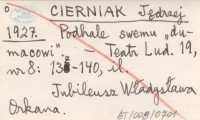 o CIERNIAK Jędrzej
1927. Podhale swemu „du-
macowi". – Teatr Lud. 19,
nr 8: 138-140, il.
Jubileusz Władysława
Orkana.